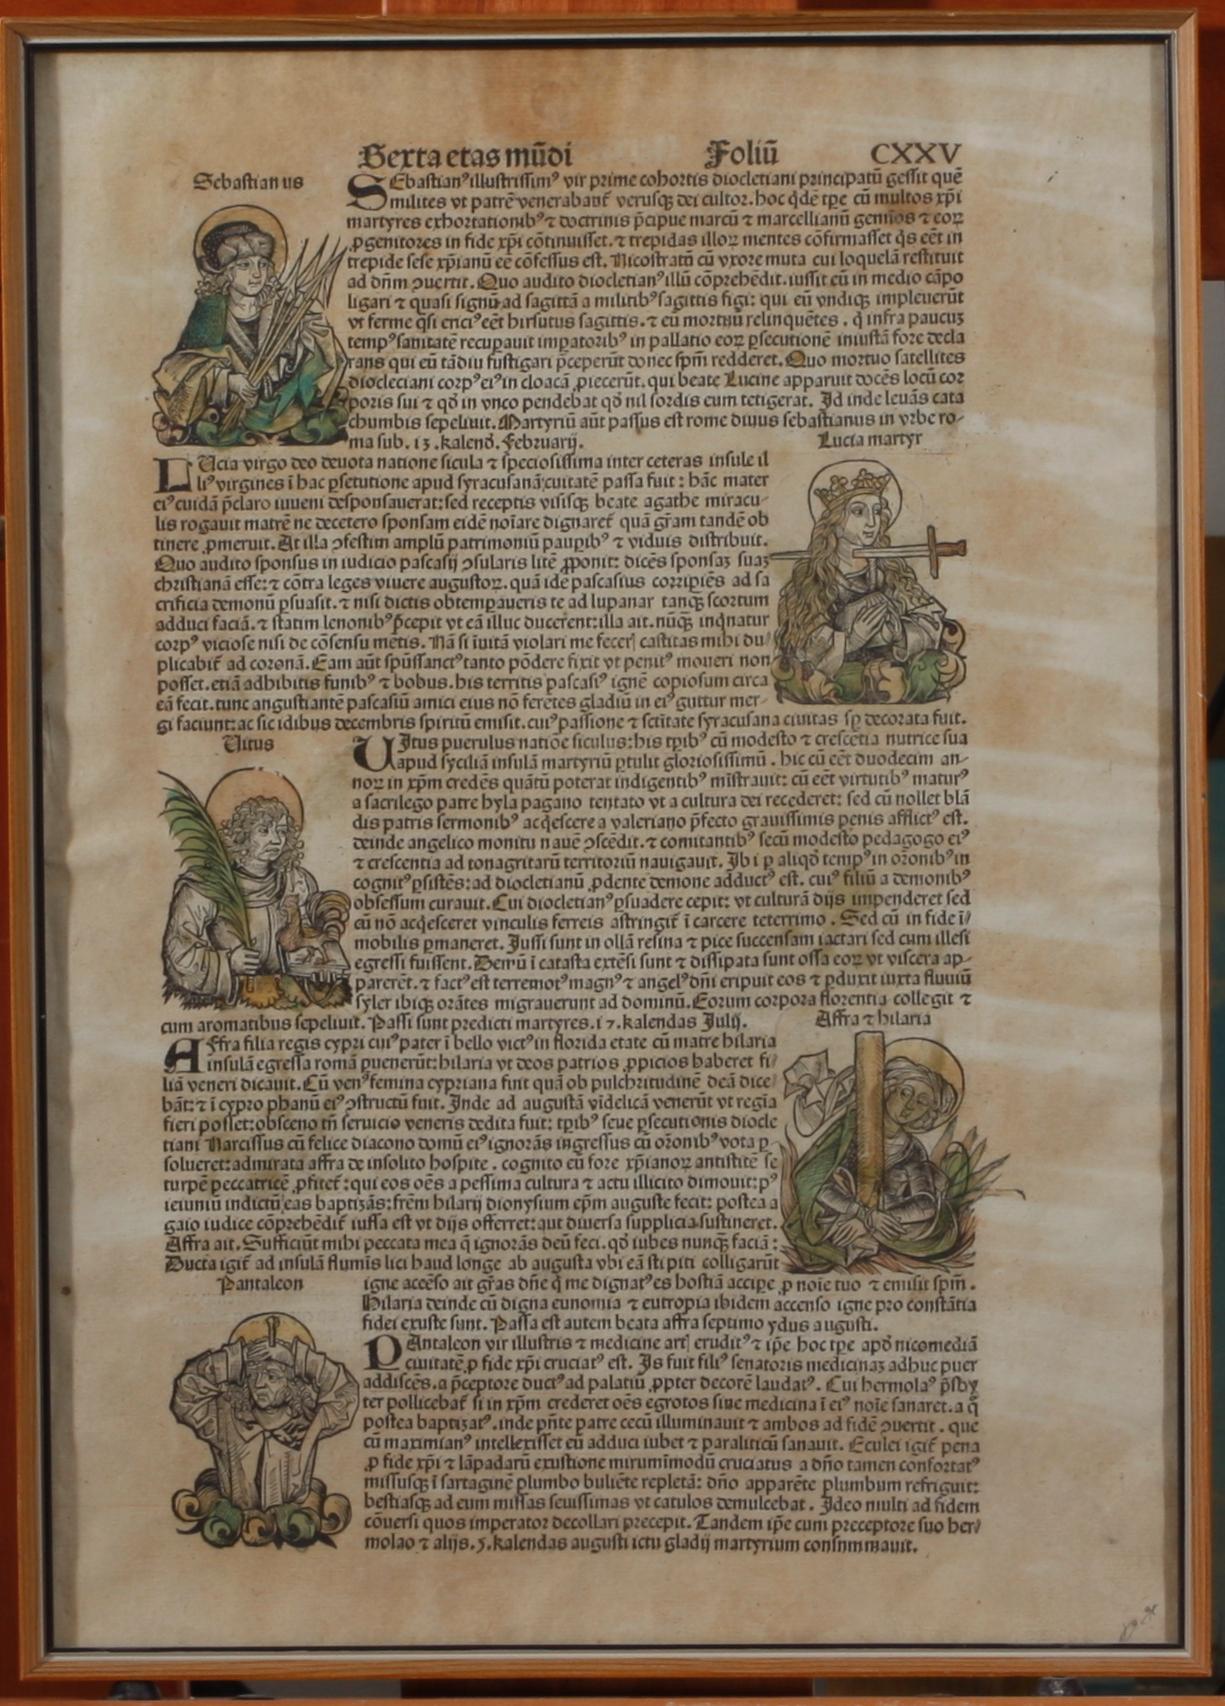 Sexta etas mūdi Foliū CXXV
Sebastianus
SEbastianꝰ illustrissimꝰ vir prime cohortis diocletiani principatū gessit quē
milites vt patrē venerabant̄ verusqꝫ dei cultor. hoc q̄dē tꝑe cū multos xp̄i
martyres exhortationibꝰ ⁊ doctrinis p̄cipue marcū ⁊ marcellianū gemīos ⁊ eoꝝ
ꝓgenitores in fide xp̄i cōtinuisset. ⁊ trepidas illoꝝ mentes cōfirmasset q̄s eēt in
trepide sese xp̄ianū eē cōfessus est. Nicostratū cū vxore muta cui loquelā restituit
ad dn̄m ꝯuertit. Quo audito diocletianꝰ illū cōprehēdit. iussit eū in medio cāpo
ligari ⁊ quasi signū ad sagittā a militibꝰ sagittis figi: qui eū vndiqꝫ impleuerūt
vt ferme q̄si ericiꝰ eēt hirsutus sagittis. ⁊ eū mortuū relinquētes. q̄ infra paucuꝫ
tempꝰ sanitatē recuꝑauit imꝑatoribꝰ in pallatio eoꝝ ꝑsecutionē iniustā fore decla
rans qui eū tādiu fustigari p̄ceperūt donec sp̄m redderet. Quo mortuo satellites
diocleciani corpꝰ eiꝰ in cloacā ꝓiecerūt. qui beate Lucine apparuit docēs locū cor
poris sui ⁊ qd̄ in vnco pendebat qd̄ nil sordis eum tetigerat. Id inde leuās cata
chumbis sepeliuit. Martyriū aūt passus est rome diuus sebastianus in vrbe ro-
ma sub. 13. kalend̄. Februarij.
Lucia martyr
LUcia virgo deo deuota natione sicula ⁊ speciosissima inter ceteras insule il
liꝰ virgines ī hac ꝑsetutione apud syracusanā ciuitatē passa fuit: hāc mater
eiꝰ cuidā p̄claro iuueni desponsauerat: sed receptis visisqꝫ beate agathe miracu-
lis rogauit matrē ne decetero sponsam eidē noīare dignaret̄ quā gr̄am tandē ob
tinere ꝓmeruit. At illa ꝯfestim amplū patrimoniū pauꝑibꝰ ⁊ viduis distribuit.
Quo audito sponsus in iudicio pascasij ꝯsularis litē ꝓponit: dicēs sponsaꝫ suaꝫ
christianā esse: ⁊ cōtra leges viuere augustoꝝ. quā ide pascasius corripiēs ad sa
crificia demonū ꝑsuasit. ⁊ nisi dictis obtemꝑaueris te ad lupanar tanqꝫ scortum
adduci faciā. ⁊ statim lenonibꝰ p̄cepit vt eā illuc ducerent: illa ait. nūqꝫ inqnatur
corpꝰ viciose nisi de cōsensu mētis. Nā si īuitā violari me feceꝶ castitas mihi du/
plicabit̄ ad coronā. Eam aūt spūssanctꝰ tanto pōdere fixit vt penitꝰ moueri non
posset. etiā adhibitis funibꝰ ⁊ bobus. his territis pascasiꝰ ignē copiosum circa
eā fecit. tunc angustiantē pascasiū amici eius nō ferētes gladiū in eiꝰ guttur mer-
gi faciunt: ac sic idibus decembris spiritū emisit. cuiꝰ passione ⁊ sctītate syracusana ciuitas sꝑ decorata fuit.
Uitus
UItus puerulus natiōe siculus: his tꝑibꝰ cū modesto ⁊ crescētia nutrice sua
apud syciliā insulā martyriū ꝑtulit gloriosissimū. hic cū eēt duodecim an-
noꝝ in xp̄m credēs quātū poterat indigentibꝰ mīstrauit: cū eēt virtutibꝰ maturꝰ
a sacrilego patre hyla pagano tentato vt a cultura dei recederet: sed cū nollet blā
dis patris sermonibꝰ acq̄escere a valeriano p̄fecto grauissimis penis afflictꝰ est.
deinde angelico monitu nauē ꝯscēdit. ⁊ comitantibꝰ secū modesto pedagogo eiꝰ
⁊ crescentia ad tonagritarū territoriū nauigauit. Ibi ꝑ aliqd̄ tempꝰ in orōnibꝰ in
cognitꝰ ꝑsistēs: ad diocletianū ꝓdente demone adductꝰ est. cuiꝰ filiū a demonibꝰ
obsessum curauit. Cui diocletianꝰ ꝑsuadere cepit: vt culturā dijs impenderet sed
cū nō acq̄esceret vinculis ferreis astringit̄ ī carcere teterrimo. Sed cū in fide ī/
mobilis ꝑmaneret. Iussi sunt in ollā resina ⁊ pice succensam iactari sed cum illesi
egressi fuissent. Demū ī catasta extēsi sunt ⁊ dissipata sunt ossa eoꝝ vt viscera ap-
parerēt. ⁊ factꝰ est terremotꝰ magnꝰ ⁊ angelꝰ dn̄i eripuit eos ⁊ ꝑduxit iuxta fluuiū
syler ibiqꝫ orātes migrauerunt ad dominū. Eorum corpora florentia collegit ⁊
cum aromatibus sepeliuit. Passi sunt predicti martyres. 17. kalendas Julij.
Affra ⁊ hilaria
AFfra filia regis cypri cuiꝰ pater ī bello victꝰ in florida etate cū matre hilaria
insulā egressa romā ꝑuenerūt: hilaria vt deos patrios ꝓpicios haberet fi/
liā veneri dicauit. Cū venꝰ femina cypriana fuit quā ob pulchritudinē deā dice/
bāt: ⁊ ī cypro phanū eiꝰ ꝯstructū fuit. Inde ad augustā vīdelicā venerūt vt regīa
fieri posset: obsceno tn̄ seruicio veneris dedita fuit: tꝑibꝰ seue ꝑsecutionis diocle
tiani Narcissus cū felice diacono domū eiꝰ ignorās ingressus cū orōnibꝰ vota ꝑ-
solueret: admirata affra de insolito hospite. cognito eū fore xp̄ianoꝝ antistitē se
turpē peccatricē ꝓfitet̄: qui eos oēs a pessima cultura ⁊ actu illicito dimouit: pꝰ
ieiuniū indictū eas baptizās: frēm hilarij dionysium ep̄m auguste fecit: postea a
gaio iudice cōprehēdit̄ iussa est vt dijs offerret: aut diuersa supplicia sustineret.
Affra ait. Sufficiūt mihi peccata mea q̄ ignorās deū feci. qd̄ iubes nunqꝫ faciā:
Ducta igit̄ ad insulā flumīs lici haud longe ab augusta vbi eā stipiti colligarūt
igne accēso ait gr̄as dn̄e q̄ me dignatꝰ es hostiā accipe ꝓ noīe tuo ⁊ emisit sp̄m.
Hilaria deinde cū digna eunomia ⁊ eutropia ibidem accenso igne pro constātia
fidei exuste sunt. Passa est autem beata affra septimo ydus augusti.
Pantaleon
PAntaleon vir illustris ⁊ medicine artꝶ eruditꝰ ⁊ ip̄e hoc tꝑe apd̄ nicomediā
ciuitatē ꝓ fide xp̄i cruciatꝰ est. Is fuit filiꝰ senatoris medicinaꝫ adhuc puer
addiscēs. a p̄ceptore ductꝰ ad palatiū ꝓpter decorē laudatꝰ. Cui hermolaꝰ p̄sby
ter pollicebat̄ si in xp̄m crederet oēs egrotos sine medicina ī eiꝰ noīe sanaret. a q̄
postea baptizatꝰ. inde pn̄te patre cecū illuminauit ⁊ ambos ad fidē ꝯuertit. que
cū maximianꝰ intellexisset eū adduci iubet ⁊ paraliticū sanauit. Eculei igit̄ pena
ꝓ fide xp̄i ⁊ lāpadarū exustione mirummodū cruciatus a dn̄o tamen confortatꝰ
missusqꝫ ī sartaginē plumbo buliēte repletā: dn̄o apparēte plumbum refriguit:
bestiasqꝫ ad eum missas seuissimas vt catulos demulcebat. Ideo multi ad fidem
cōuersi quos imperator decollari precepit. Tandem ip̄e cum preceptore suo her/
molao ⁊ alijs. 5. kalendas augusti ictu gladij martyrium consummauit.